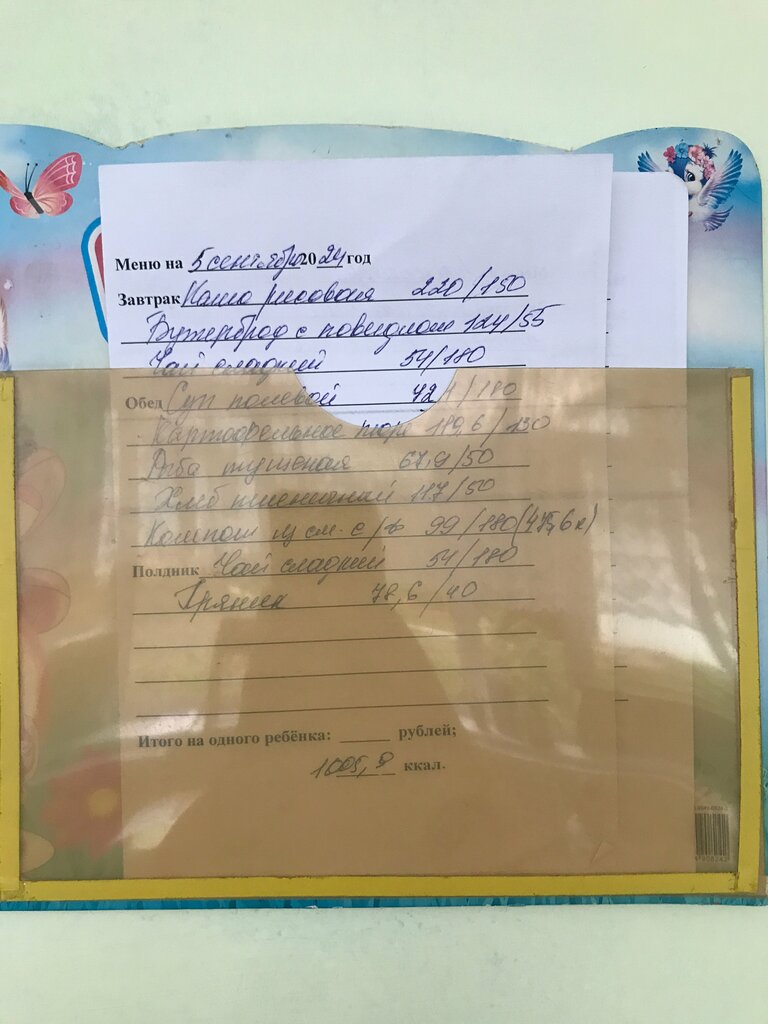 Меню на 5 сентября 2024 год
Завтрак Каша рисовая 220/150
Бутерброд с повидлом 124/55
Чай сладкий 54/180
Обед Суп полевой 124/180
Картофельное пюре 189,6/130
Рыба тушеная 67,9/50
Хлеб пшеничный 117/50
Компот из см. с/ф 99/180
Полдник Чай сладкий 54/180
Пряник 78,6/40
Итого на одного ребёнка: ______ рублей;
ккал.